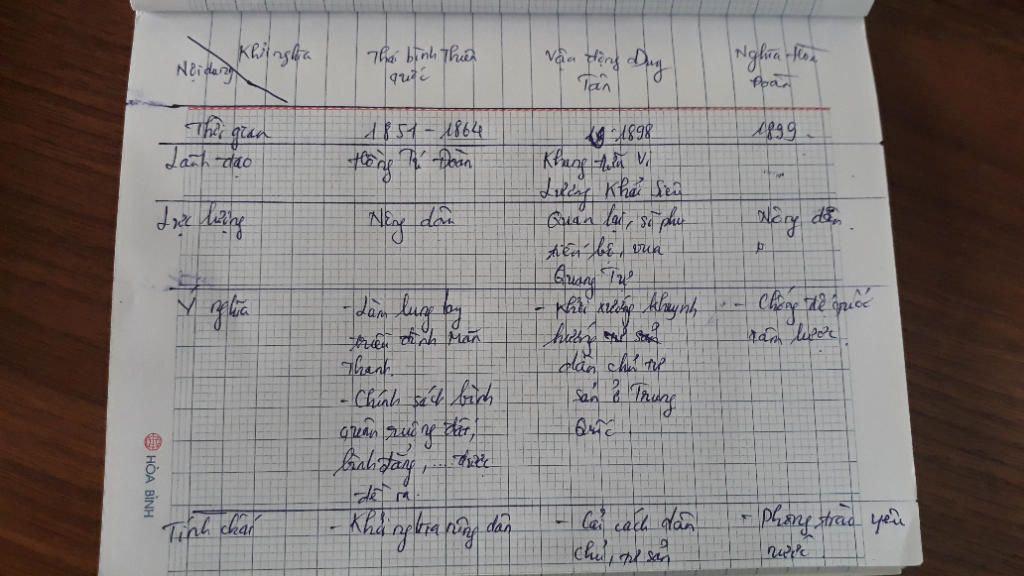 Khởi nghĩa
Nội dung
Thái bình Thiên quốc
Vận động Duy Tân
Nghĩa Hòa Đoàn
Thời gian
1851 - 1864
1898
1899
Lãnh đạo
Hồng Tú Đoàn
Khang Hữu Vi
Lương Khải Siêu
Lực lượng
Nông dân
Quan lại, sĩ phu
tiến bộ, vua
Quang Tự
Nông dân
Ý nghĩa
- Làm lung lay
triều đình Mãn
Thanh.
- Chính sách bình
quân ruộng đất,
bình đẳng, ... được
đề ra.
- Khởi xướng khuynh
hướng
dân chủ tư
sản ở Trung
Quốc
- Chống đế quốc
xâm lược.
Tính chất
- Khởi nghĩa nông dân
- Cải cách dân
chủ, tư sản
- Phong trào yêu
nước.
HÒA BÌNH